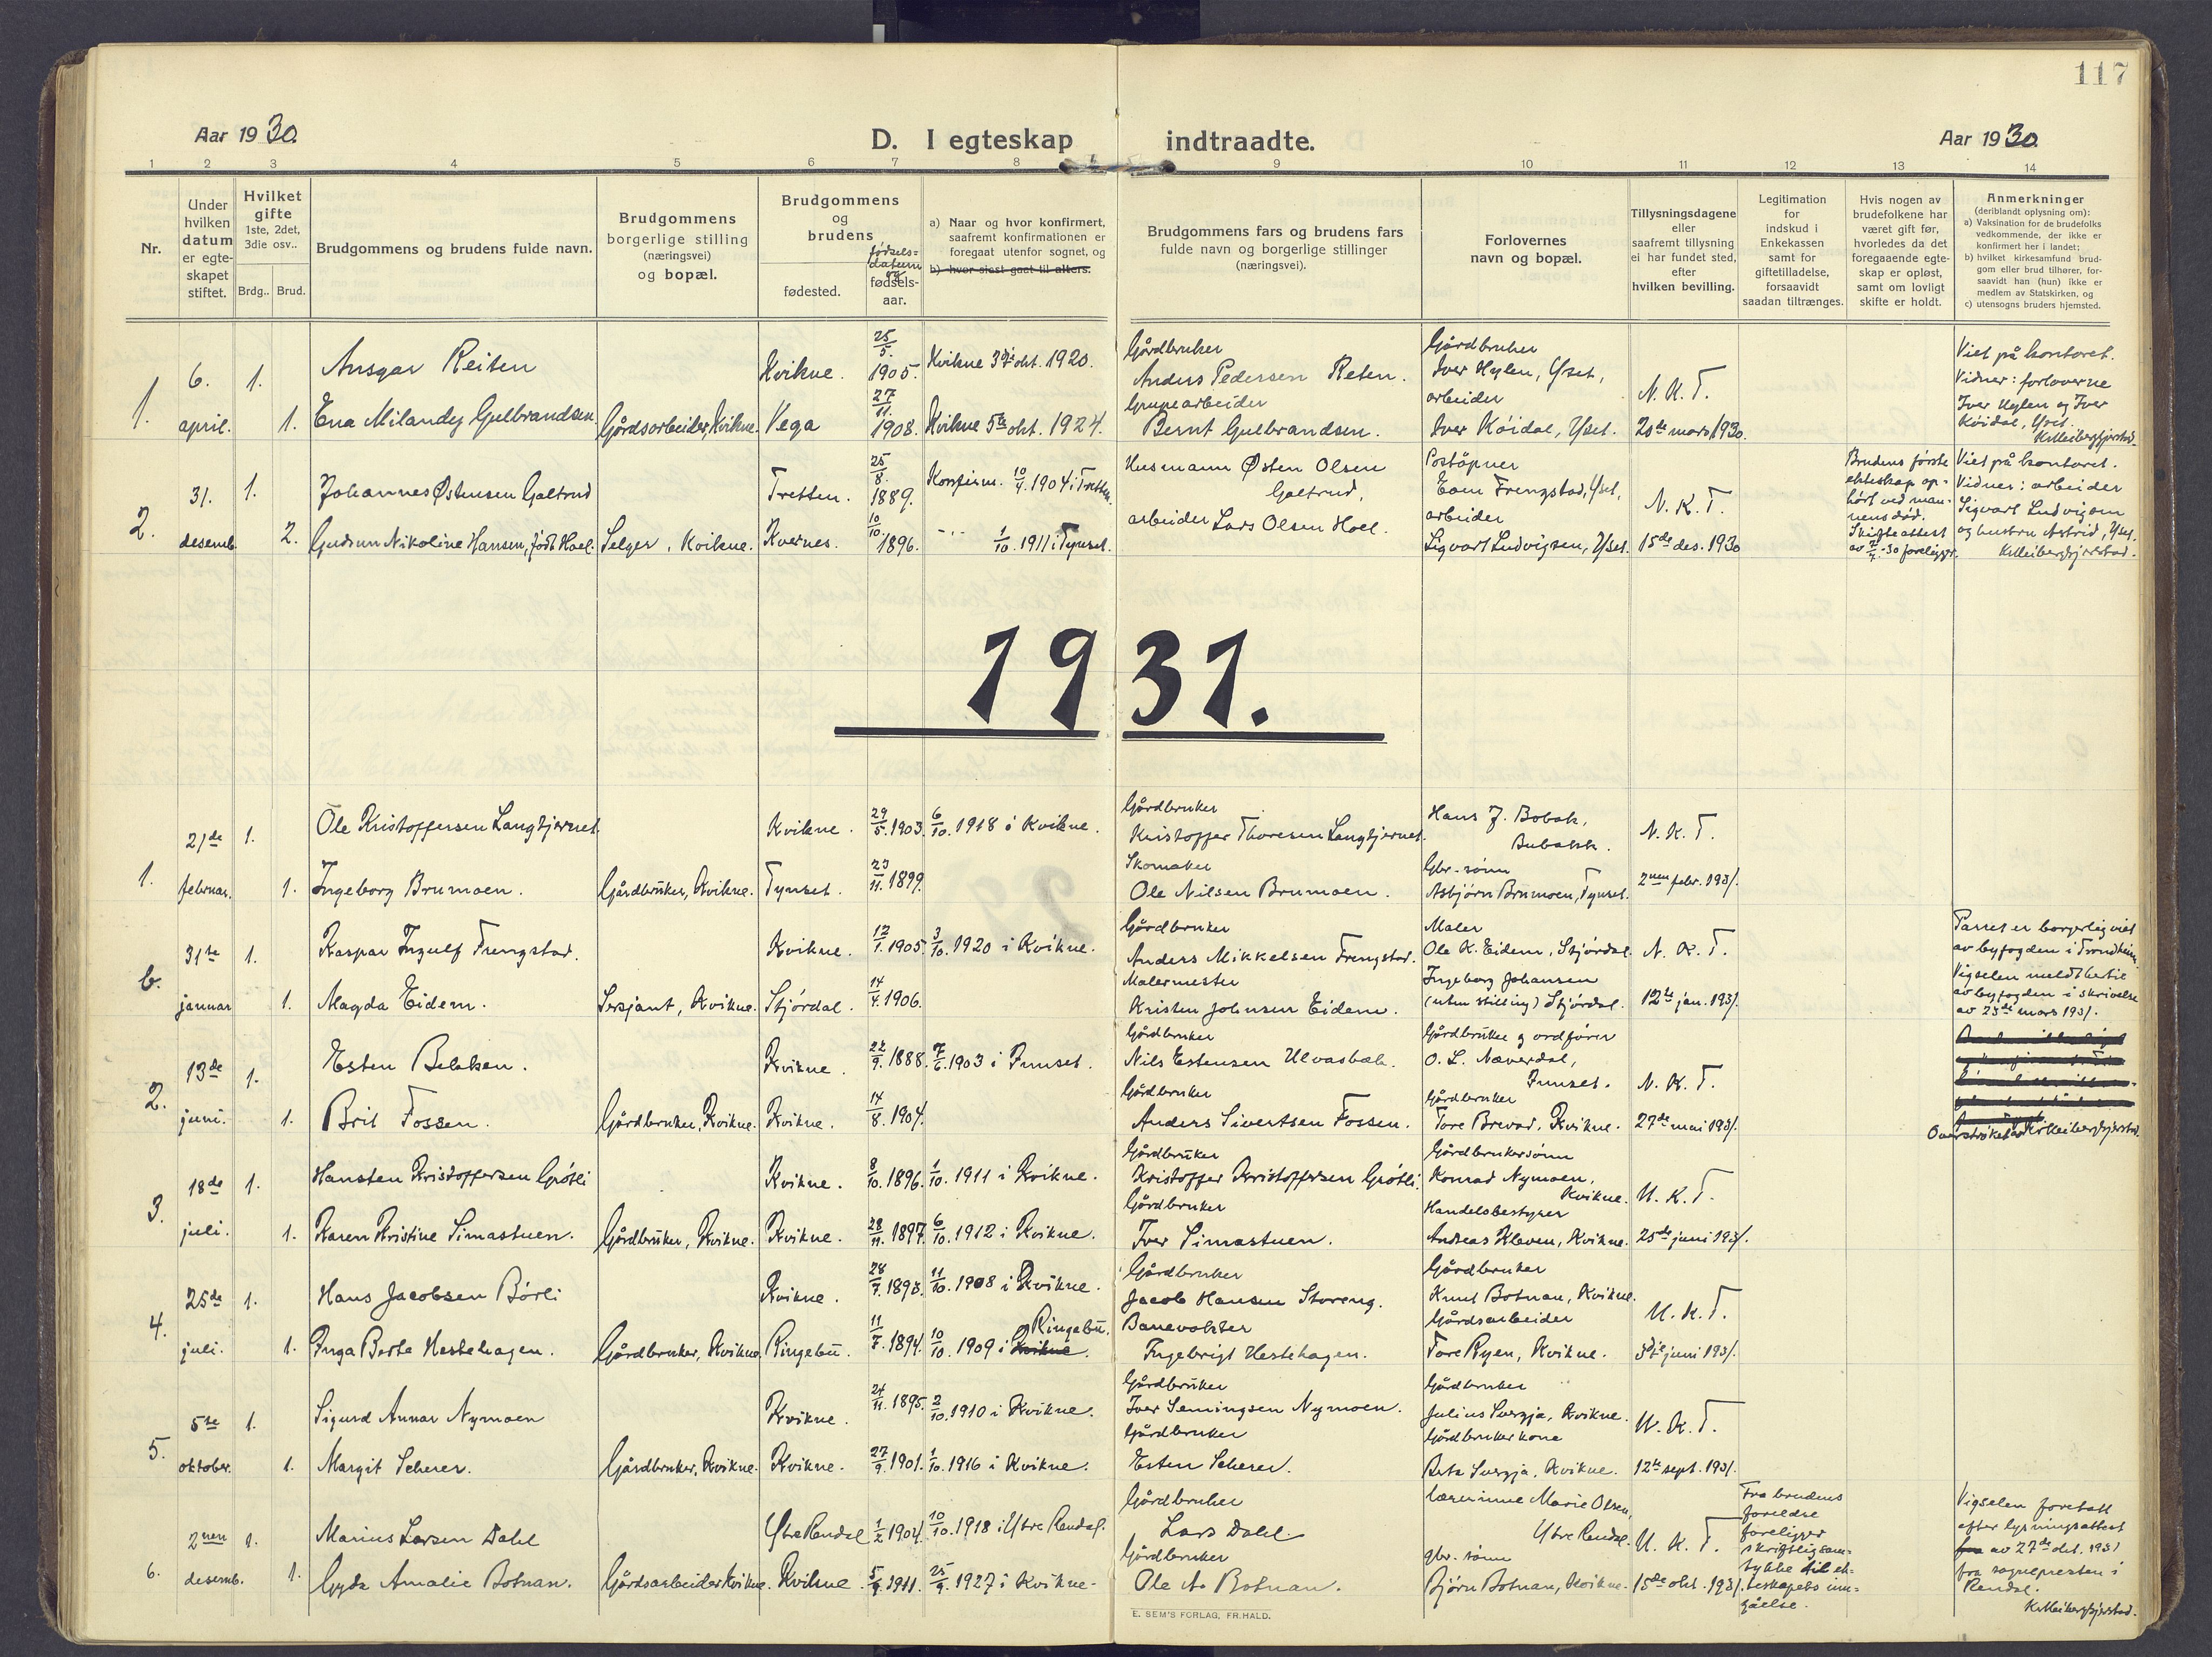 117
Aar 1930.
D. I egteskap indtraadte.
Aar 1930
1 2 3 4 5 6 7 8 9 10 11 12 13 14
Nr.
Under
hvilken
datum
er egte-
skapet
stiftet.
Hvilket
gifte
1ste, 2det,
3die osv..
Brdg.. Brud.
Brudgommens og brudens fulde navn.
Brudgommens
borgerlige stilling
(næringsvei)
og bopæl.
Brudgommens
og
brudens
fødested.
fødsels-
datum
og
fødsels-
aar.
a) Naar og hvor konfirmert,
saafremt konfirmationen er
foregaat utenfor sognet, og
b) hvor sidst gaat til alters.
Brudgommens fars og brudens fars
fulde navn og borgerlige stillinger
(næringsvei).
Forlovernes
navn og bopæl.
Tillysningsdagene
eller
saafremt tillysning
ei har fundet sted,
efter
hvilken bevilling.
Legitimation
for
indskud i
Enkekassen
samt for
giftetilladelse,
forsaavidt
saadan tiltrænges.
Hvis nogen av
brudefolkene har
været gift før,
hvorledes da det
foregaaende egte-
skap er opløst,
samt om lovligt
skifte er holdt.
Anmerkninger
(deriblandt oplysning om):
a) Vaksination for de brudefolks
vedkommende, der ikke er
konfirmert her i landet;
b) hvilket kirkesamfund brud-
gom eller brud tilhører, for-
saavidt han (hun) ikke er
medlem av Statskirken, og
c) utensogns bruders hjemsted.
1.
6.
april.
1.
1.
Ansgar Reiten
Ena Milandy Gulbrandsen
Gårdsarbeider, Kvikne.
Kvikne.
Vega
25/5. 1905.
27/11. 1908.
Kvikne 3dje okt. 1920.
Kvikne 5te okt. 1924.
Gårdbruker
Anders Pedersen Reten.
Grupearbeider
Bernt Gulbrandsen.
Gårdbruker
Iver Hylen, Yset,
arbeider
Iver Köidal, Yset.
N. K. T.
20de mars 1930.
Viet på kontoret.
Vidner: forloverne
Iver Hylen og Iver
Köidal, Yset.
2.
31.
desemb.
1.
2.
Johannes Østensen Galtrud
Gudrun Nikoline Hansen, født Hoel.
Selger, Kvikne.
Tretten.
Kvernes.
25/8. 1889.
10/10. 1896.
Konfirm. 10/4. 1904 i Tretten.
1/10. 1911 i Tynset.
Husmann Østen Olsen
Galtrud,
arbeider Lars Olsen Hoel.
Poståpner
Frengstad, Yset,
arbeider
Sigvart Ludvigsen, Yset.
N. K. T.
15de des. 1930
Brudens første
ekteskap op-
hørt ved man-
nens død.
Skifteattest
av 7/4-30 foreligger.
Viet på kontoret.
Vidner: arbeider
Sigvart Ludvigsen
og hustru Astrid, Yset.
1931.
1.
21de
februar.
1.
1.
Ole Kristoffersen Langtjernet.
Ingeborg Brumoen.
Gårdbruker, Kvikne.
Kvikne.
Tynset.
29/5. 1903.
23/11. 1899.
6/10. 1918 i Kvikne.
Gårdbruker
Kristoffer Thoresen Langtjernet.
Skomaker
Ole Nilsen Brumoen.
Hans J. Bobak,
Bubakk.
Gbr.-sönn
Asbjörn Brumoen, Tynset.
N. K. T.
2nen febr. 1931.
b.
31te
januar
1.
1.
Kaspar Ingulf Frengstad.
Magda Eidem.
Sersjant, Kvikne.
Kvikne.
Stjördal.
12/1. 1905.
14/4. 1906.
3/10. 1920 i Kvikne.
Gårdbruker
Anders Mikkelsen Frengstad.
Malermester
Kristen Johnsen Eidem.
Maler
Ole K. Eidem, Stjördal.
Ingeborg Johansen
(uten stilling) Stjördal.
N. K. T.
12te jan. 1931.
Parret er borgerlig viet
av byfogden i Trondheim.
Vigselen meldt hertil
av byfogden i skrivelse
av 23de mars 1931.
2.
13de
juni.
1.
1.
Esten Bekken.
Brit Fossen.
Gårdbruker, Kvikne.
Kvikne.
Kvikne.
22/9. 1888.
14/8. 1904.
7/6. 1903 i Tynset.
Gårdbruker
Nils Estensen Ulvasbak.
Gårdbruker
Anders Sivertsen Fossen.
Gårdbruker og ordförer
O. L. Næverdal,
Tynset.
Gårdbruker
Tore Brevad, Kvikne.
N. K. T.
27de mai 1931.
3.
18de
juli.
1.
1.
Hansten Kristoffersen Grötli
Karen Kristine Simastuen.
Gårdbruker, Kvikne.
Kvikne.
Kvikne.
8/10. 1896.
28/11. 1897.
1/10. 1911 i Kvikne.
6/10. 1912 i Kvikne.
Gårdbruker
Kristoffer Kristoffersen Grötli.
Gårdbruker
Iver Simastuen.
Gårdbrukersönn
Konrad Nymoen,
Kvikne.
Handelsbestyrer
Andreas Kleven, Kvikne.
N. K. T.
25de juni 1931.
4.
25de
juli.
1.
1.
Hans Jacobsen Börli
Inga Berte Hestehagen.
Gårdbruker, Kvikne.
Kvikne.
Ringebu.
28/7. 1893.
11/7. 1894.
11/10. 1908 i Kvikne.
10/10. 1909 i Kvikne. Ringebu.
Gårdbruker
Jacob Hansen Storeng.
Banevokter
Ingebrigt Hestehagen.
Gårdbruker
Knut Botnan, Kvikne.
Gårdsarbeider
Tore Ryen, Kvikne.
N. K. T.
3dje juni 1931.
5.
5te
oktober.
1.
1.
Sigurd Annar Nymoen
Margit Scherer.
Gårdbruker, Kvikne.
Kvikne.
Kvikne.
24/11. 1895.
27/9. 1901.
2/10. 1910 i Kvikne.
1/10. 1916 i Kvikne.
Gårdbruker
Iver Semingsen Nymoen.
Gårdbruker
Esten Scherer.
Gårdbruker
Julius Svergja, Kvikne.
Gårdbrukerkone
Berta Svergja, Kvikne.
N. K. T.
12te sept. 1931.
6.
2nen
desemb.
1.
1.
Marius Larsen Dahl
Gyda Amalie Botnan.
Gårdsarbeider Kvikne.
Ytre Rendal
Kvikne.
1/2 1904.
5/9. 1911.
10/10. 1918 i Ytre Rendal.
25/9. 1927 i Kvikne.
Gårdbruker
Lars Dahl.
Gårdbruker
Ole A. Botnan.
lærerinne Marie Olsen,
Ytre Rendal.
gbr. sönn
Björn Botnan, Kvikne.
N. K. T.
15de okt. 1931.
Fra brudens
foreldre
foreligger
skriftlig sam-
tykke til ek-
teskapets inn-
gåelse.
Vigselen foretatt
efter lysningsattest
fra av 27de okt. 1931
fra sognepresten i
Rendal.
E. SEM'S FORLAG, FR.HALD.